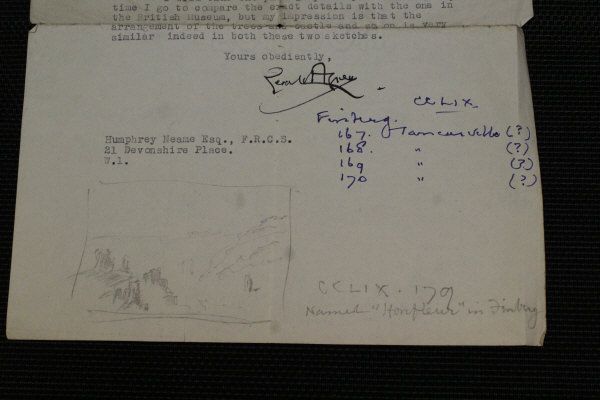 time I go to compare the exact details with the one in
the British Museum, but my impression is that the
arrangement of the trees and castle and so on is very
similar indeed in both these two sketches.
Yours obediently,
CCLIX.
Finberg.
167. Tancarville (?)
168. " (?)
169 " (?)
170 " (?)
Humphrey Neame Esq., F.R.C.S.
21 Devonshire Place.
W.1.
CCLIX. 179
Named "Honfleur" in Finberg